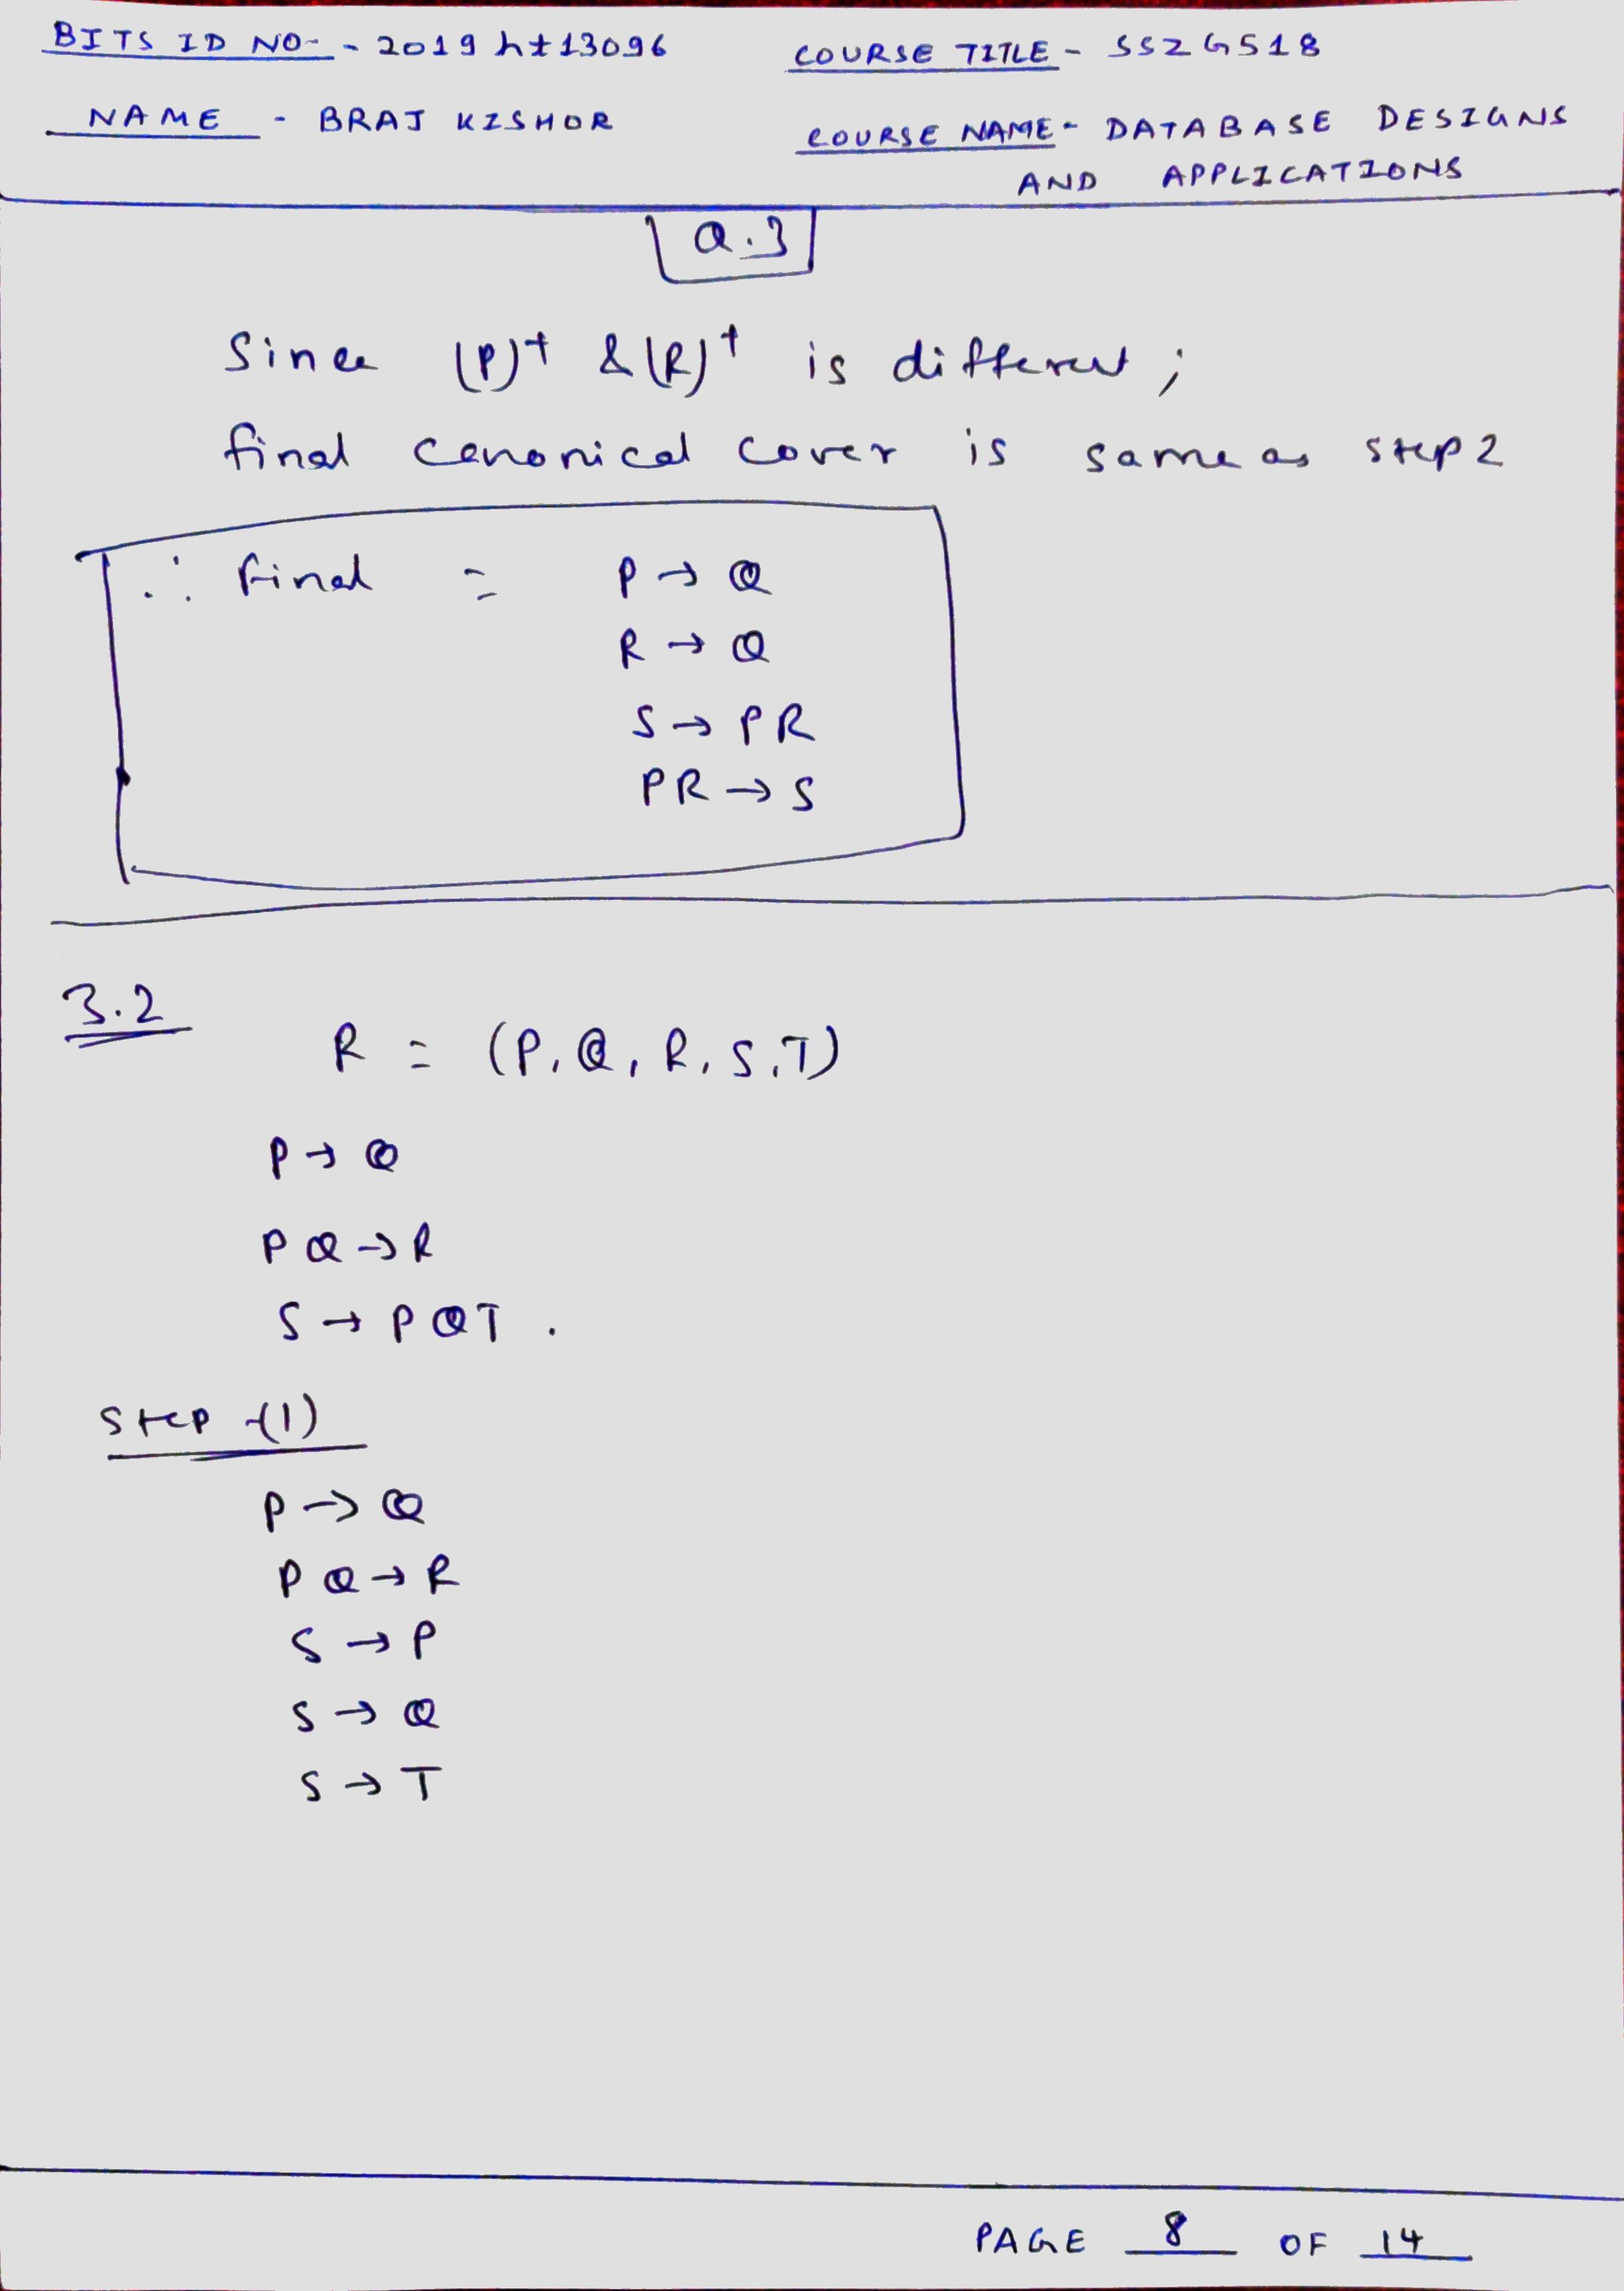 BITS ID NO- - 2019ht13096
COURSE TITLE - SSZG518
NAME - BRAJ KISHOR
COURSE NAME - DATABASE DESIGNS
AND APPLICATIONS
Q.3
Since (P)+ & (R)+ is different ;
final canonical cover is same as step 2
∴ final = P → Q
R → Q
S → PR
PR → S
3.2
R = (P, Q, R, S, T)
P → Q
PQ → R
S → PQT .
Step -(1)
P → Q
PQ → R
S → P
S → Q
S → T
PAGE 8 OF 14